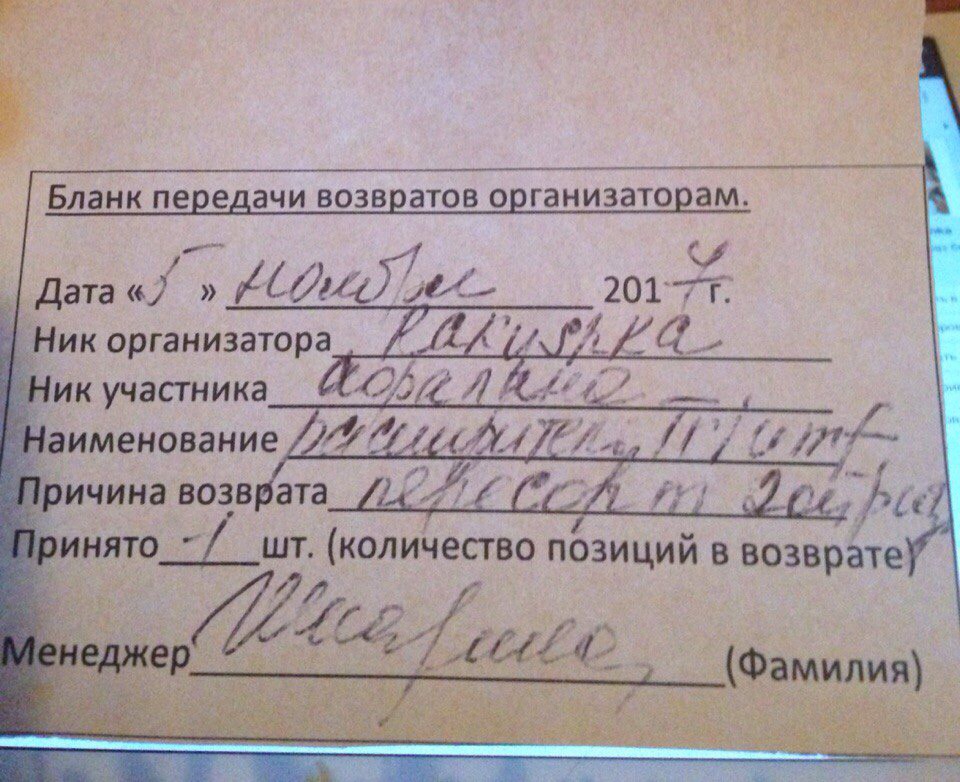 Бланк передачи возвратов организаторам.
Дата «5» ноября 2017 г.
Ник организатора Ракушка
Ник участника
Наименование расширитель
Причина возврата пересорт
Принято 1 шт. (количество позиций в возврате)
Менеджер (Фамилия)